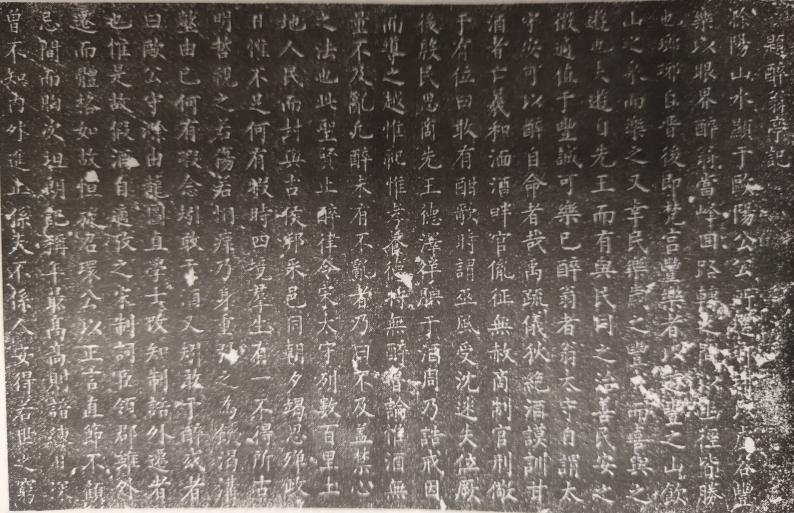 題醉翁亭記
滁陽山水顯于歐陽公公所遊
樂以暇畧醉翁當峰回路轉
也瑯琊自晉後即梵宮豐樂者以豐之山飲
山之泉而樂之又幸民樂歲之豐而喜與之
遊也夫遊自先王而有與民同之活善民安之
微適值于豐誠可樂已醉翁者翁太守自謂太
守安可以醉自命者哉禹疏儀狄絕酒謨訓甘
酒者亡羲和湎酒畔官胤征無赦商制官刑儆
于有位曰敢有酣歌時謂巫風受沈迷失位厥
後殷民思商先王德澤徉于酒周乃誥戒因
而導之越惟祀惟孝養從無醉魯論惟酒無
量不及亂凡醉未有不亂者乃曰不及蓋禁心
之法也此聖賢止醉律令宋太守列數百里土
地人民而封與古侯邦采邑同朝夕竭忍殫政
日惟不足何有暇時四境羣生有一不得所古
明哲視之若傷若恫瘝乃身重以之為飲溺溝
壑由已何有暇念剏敢于酒又剏敢于醉或者
曰歐公守滁由龍圖直學士改知制誥外遷者
也惟是故假酒自適攷之宋制詞臣領郡雖外
遷而體格如故但滁石環公以正言直節不顧
忌間而胸次坦記稱年最高高則諳練
曾不知內外進止係天不係人安得若世之窮